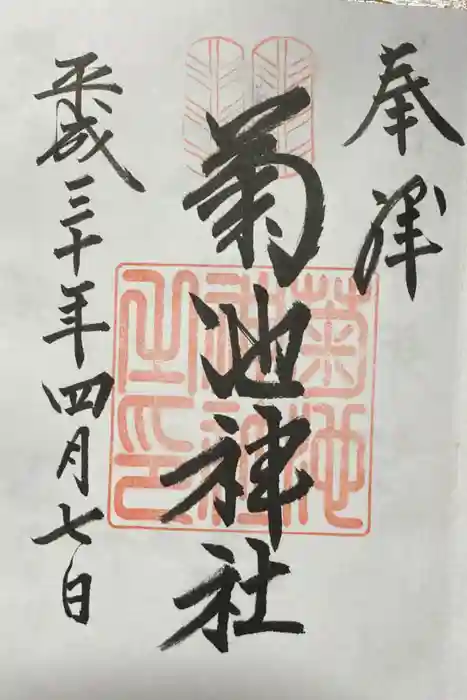 奉拝
菊池神社
菊池神社之印
平成三十年四月七日